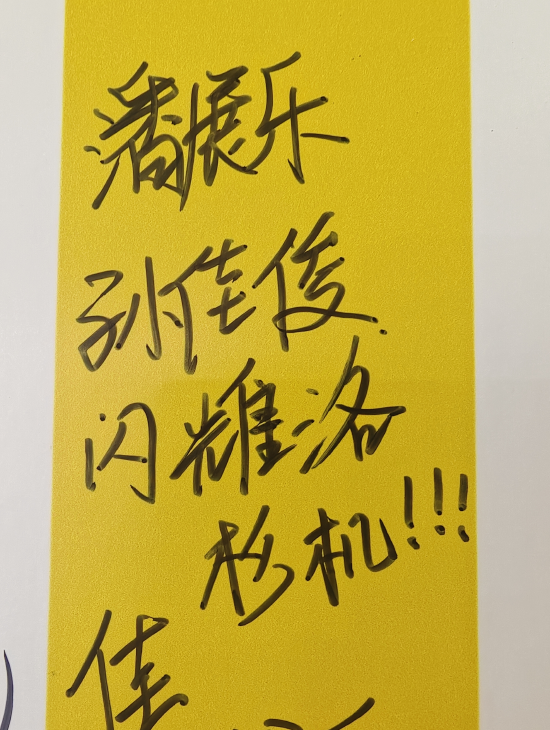 潘展乐
孙佳俊
闪耀洛
杉机!!!
佳